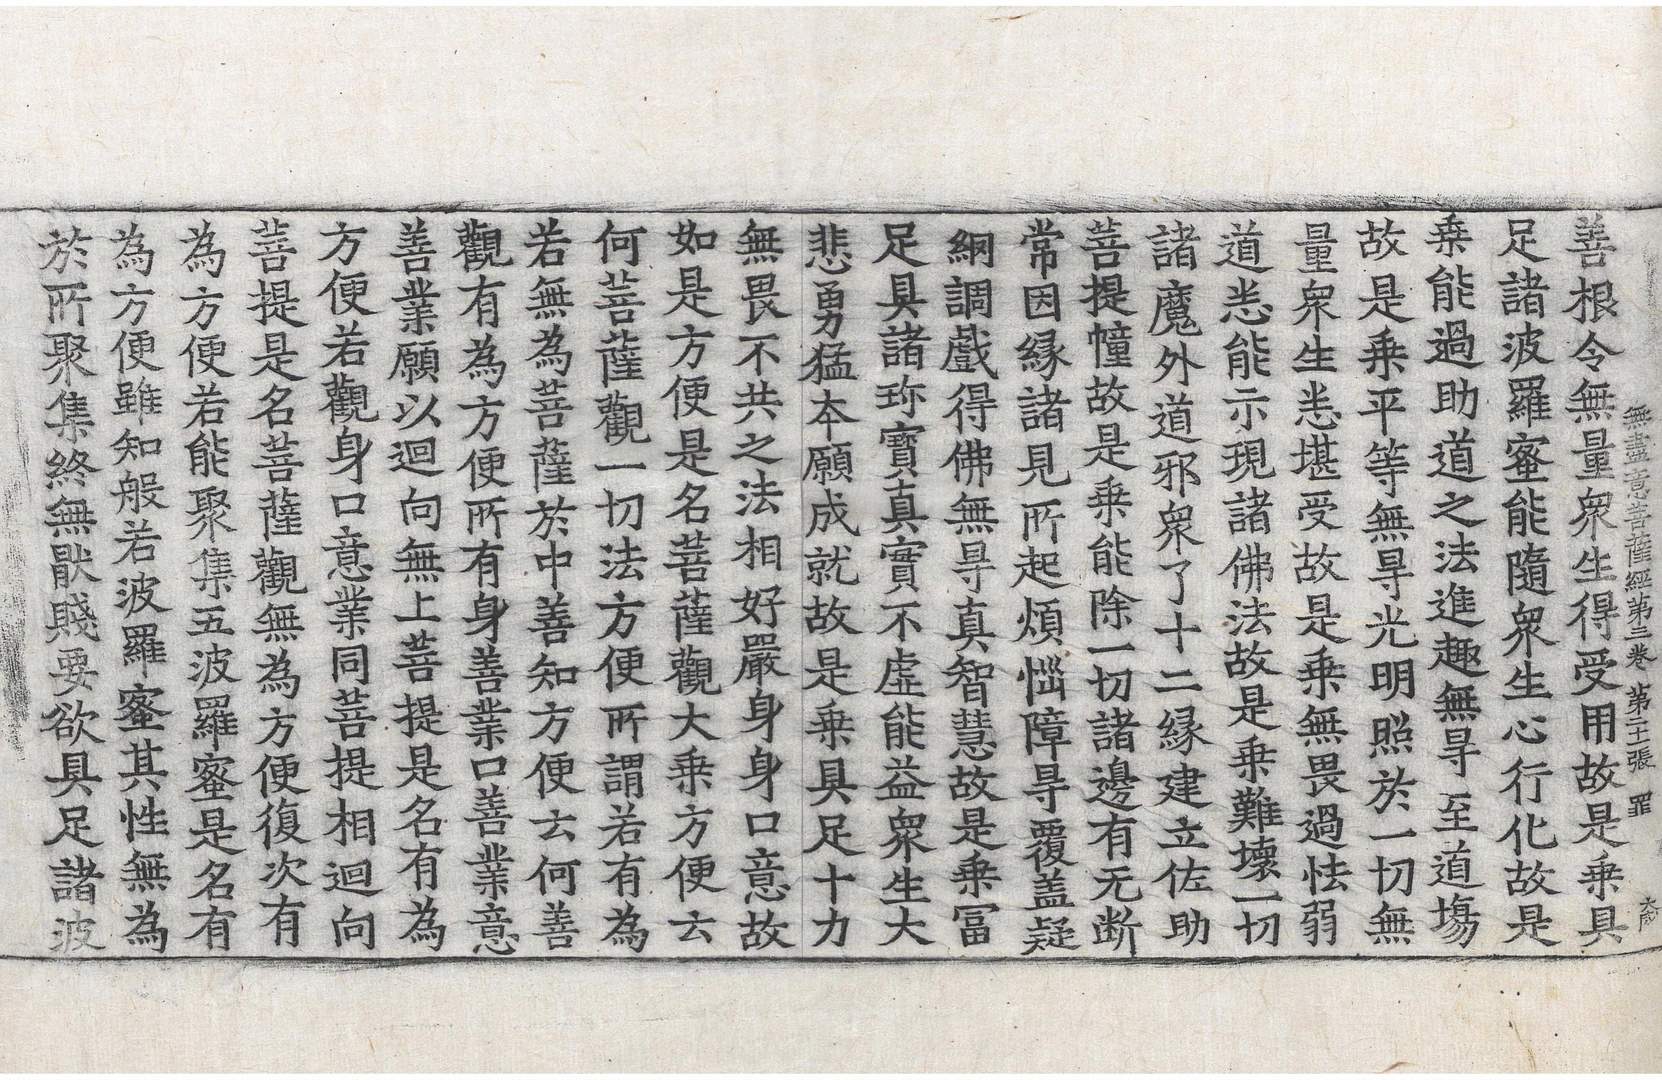 無盡意菩薩經第三卷 第二十張 罪
善根令無量衆生得受用故是乗具
足諸波羅蜜能隨衆生心行化故是
乗能過助道之法進趣無㝵至道塲
故是乗平等無㝵光明照於一切無
量衆生悉堪受故是乗無畏過怯弱
道悉能示現諸佛法故是乗難壞一切
諸魔外道邪衆了十二縁建立佐助
菩提幢故是乗能除一切諸邊有无断
常因縁諸見所起煩惱障㝵覆盖疑
網調戲得佛無㝵真智慧故是乗冨
足具諸珎寶真實不虛能益衆生大
悲勇猛本願成就故是乗具足十力
無畏不共之法相好嚴身身口意故
如是方便是名菩薩觀大乗方便云
何菩薩觀一切法方便所謂若有為
若無為菩薩於中善知方便云何善
觀有為方便所有身善業口善業意
善業願以迴向無上菩提是名有為
方便若觀身口意業同菩提相迴向
菩提是名菩薩觀無為方便復次有
為方便若能聚集五波羅蜜是名有
為方便雖知般若波羅蜜其性無為
於所聚集終無猒賤要欲具足諸波